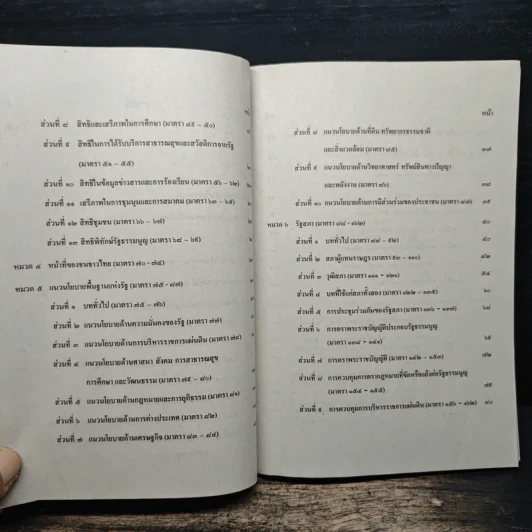 ส่วนที่ ๘ สิทธิและเสรีภาพในการศึกษา (มาตรา ๔๙ - ๕๐)
ส่วนที่ ๙ สิทธิในการได้รับบริการสาธารณสุขและสวัสดิการจากรัฐ
(มาตรา ๕๑ - ๕๕)
ส่วนที่ ๑๐ สิทธิในข้อมูลข่าวสารและการร้องเรียน (มาตรา ๕๖ - ๖๒)
ส่วนที่ ๑๑ เสรีภาพในการชุมนุมและการสมาคม (มาตรา ๖๓ - ๖๕)
ส่วนที่ ๑๒ สิทธิชุมชน (มาตรา ๖๖ - ๖๗)
ส่วนที่ ๑๓ สิทธิพิทักษ์รัฐธรรมนูญ (มาตรา ๖๘ - ๖๙)
หมวด ๔ หน้าที่ของชนชาวไทย (มาตรา ๗๐ - ๗๔)
หมวด ๕ แนวนโยบายพื้นฐานแห่งรัฐ (มาตรา ๗๕ - ๘๗)
ส่วนที่ ๑ บททั่วไป (มาตรา ๗๕ - ๗๖)
ส่วนที่ ๒ แนวนโยบายด้านความมั่นคงของรัฐ (มาตรา ๗๗)
ส่วนที่ ๓ แนวนโยบายด้านการบริหารราชการแผ่นดิน (มาตรา ๗๘)
ส่วนที่ ๔ แนวนโยบายด้านศาสนา สังคม การสาธารณสุข
การศึกษา และวัฒนธรรม (มาตรา ๗๙ - ๘๐)
ส่วนที่ ๕ แนวนโยบายด้านกฎหมายและการยุติธรรม (มาตรา ๘๑)
ส่วนที่ ๖ แนวนโยบายด้านการต่างประเทศ (มาตรา ๘๒)
ส่วนที่ ๗ แนวนโยบายด้านเศรษฐกิจ (มาตรา ๘๓ - ๘๔)
หน้า
ส่วนที่ ๘ แนวนโยบายด้านที่ดิน ทรัพยากรธรรมชาติ
และสิ่งแวดล้อม (มาตรา ๘๕) ๓๗
ส่วนที่ ๙ แนวนโยบายด้านวิทยาศาสตร์ ทรัพย์สินทางปัญญา
และพลังงาน (มาตรา ๘๖) ๓๘
ส่วนที่ ๑๐ แนวนโยบายด้านการมีส่วนร่วมของประชาชน (มาตรา ๘๗) ๓๙
หมวด ๖ รัฐสภา (มาตรา ๘๘ - ๑๖๒) ๔๐
ส่วนที่ ๑ บททั่วไป (มาตรา ๘๘ - ๙๒) ๔๐
ส่วนที่ ๒ สภาผู้แทนราษฎร (มาตรา ๙๓ - ๑๑๐) ๔๒
ส่วนที่ ๓ วุฒิสภา (มาตรา ๑๑๑ - ๑๒๑) ๕๔
ส่วนที่ ๔ บทที่ใช้แก่สภาทั้งสอง (มาตรา ๑๒๒ - ๑๓๕)
ส่วนที่ ๕ การประชุมร่วมกันของรัฐสภา (มาตรา ๑๓๖ - ๑๓๗)
ส่วนที่ ๖ การตราพระราชบัญญัติประกอบรัฐธรรมนูญ
(มาตรา ๑๓๘ - ๑๔๑)
ส่วนที่ ๗ การตราพระราชบัญญัติ (มาตรา ๑๔๒ - ๑๕๓) ๗๒
ส่วนที่ ๘ การควบคุมการตรากฎหมายที่ขัดหรือแย้งต่อรัฐธรรมนูญ
(มาตรา ๑๕๔ - ๑๕๕)
ส่วนที่ ๙ การควบคุมการบริหารราชการแผ่นดิน (มาตรา ๑๕๖ - ๑๖๒) ๘๐